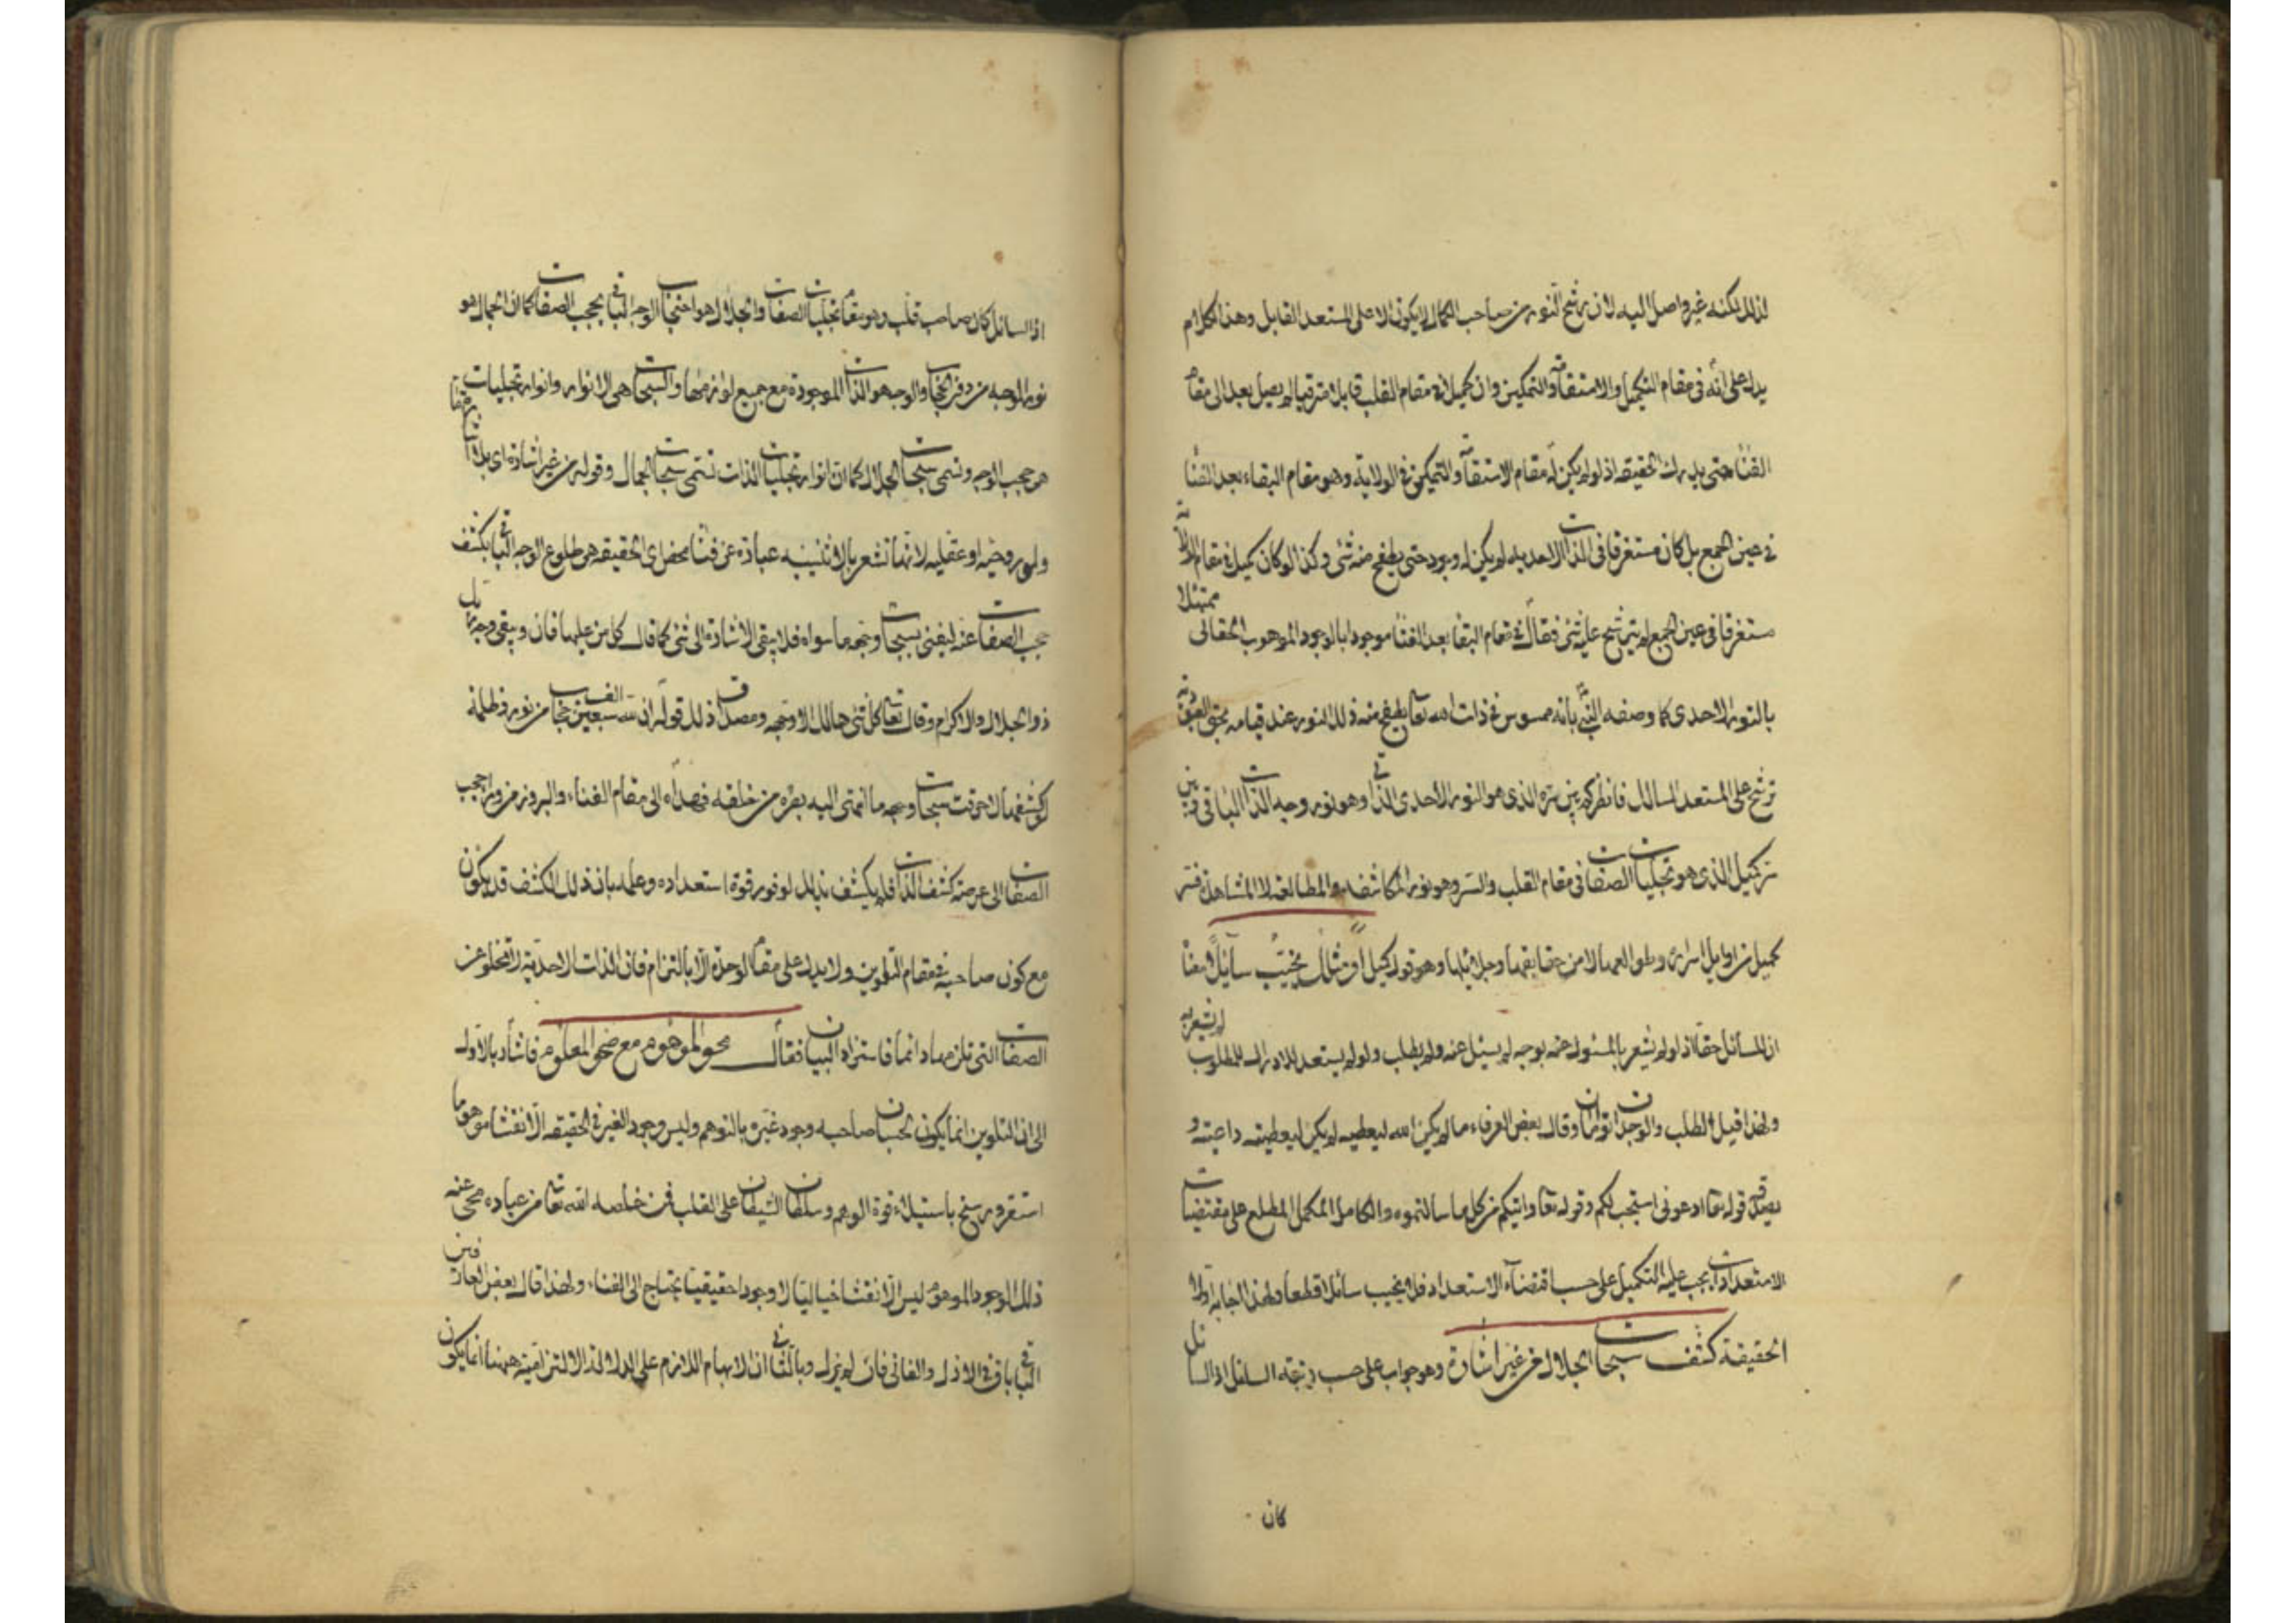 لذلك لكنه غير واصل اليه لان ترشح النور من صاحب الكمال لا يكون الا على المستعد القابل وهذا الكلام
يدل على انه في مقام التكميل والاستقامة والتمكين وان كميل في مقام القلب قابل مترقيا لم يصل بعد الى مقام
الفنا حتى يدرك الحقيقه اذ لو لم يكن له مقام الاستقامة والتمكين في الولاية وهو مقام البقاء بعد الفنا
في عين الجمع بل كان مستغرقا في الذات الاحديه لم يكن له وجود حتى يطفح منه شئ وكذا لو كان كميل في مقام الولاية
مستغرقا في عين الجمع لم يترشح عليه شئ فقال في مقام البقا بعد الفنا موجودا بالوجود الموهوب الحقاني ممتثلا
بالنور الاحدى كما وصفه النبي بانه ممسوس في ذات الله تعا يطفح منه ذلك النور عند قيامه بحق العبودية
ترشح على المستعد السالك فانظر كم بين سره الذى هو النور الاحدى الذاتي وهو نور وجه الذات الباقي وبين
سر كميل الذى هو تجليات الصفات في مقام القلب والسر وهو نور المكاشفه والمطالعه لا المشاهدة فسر
كميل من اوايل اسراره وطوالعها لا من حقايقها وجلائلها وهو قوله كميل أو مثلك يخيّب سائلًا فقا
ان للسائل حقا اذ لو لم يشعر بالمسئول عنه بوجه لم يسئل عنه ولم يطلب ولو لم يستعد للادراك للمطلوب لم يشعر به
ولهذا قيل الطلب والوجدان توامان وقال بعض العرفاء ما لم يكن الله ليعطيه لم يكن ليعطيه داعيته و
يصدقه قوله تعا ادعوني استجب لكم وقوله تعا واتيكم من كل ما سالتموه والكامل المكمل المطلع على مقتضيات
الاستعدادات يجب عليه التكميل على حسب اقتضاء الاستعداد فلم يخيب سائلا قطعا ولهذا اجابه اولا
الحقيقة كشف سبحات الجلال من غير اشارة وهو جواب على حسب السائل
كان
اذ السائل كان صاحب قلب وهو مقام تجليات الصفات والجلال هو احتجاب الوجه الباقي بحجب الصفات كما ان الجمال هو
نور الوجه من دون الحجاب والوجه هو الذات الموجودة مع جميع لوازمها والسبحات هي الانوار وانوار تجليات الصفات
هو حجب الوجه وتسمى سبحات الجلال كما ان انوار تجليات الذات تسمى سبحات الجمال وقوله من غير اشارة اى بلا اشارة
ولو روحيه او عقليه لانها تشعر بالاثنينيه عبارة عن فنا محض اى الحقيقه هو طلوع الوجه الباقي بكشف
حجب الصفات عنه ليفنى بسبحات وجهه ما سواه فلا يبقى الاشارة الى شئ كما قال كل من عليها فان ويبقى وجه ربك
ذو الجلال والاكرام وقال تعا كل شئ هالك الا وجهه ومصداق ذلك قوله ان لله سبعين الف حجاب من نور وظلمة
لو كشفها لاحرقت سبحات وجهه ما انتهى اليه بصره من خلقه فهداه الى مقام الفناء والبروز من وراء حجب
الصفات الى عرصة كشف الذات فلم يكشف بذلك لوفور قوة استعداده وعلمه بان ذلك الكشف قد يكون
مع كون صاحبه في مقام التلوين ولا يدل على مقام الوحدة الا بالتزام فان الذات الاحدية لا تخلو عن
الصفات التي تلزمها دائما فاستزاد البيان فقال محو الموهوم مع صحو المعلوم فاشار بالاول
الى ان التلوين انما يكون لحسبان صاحبه وجود غيره بالتوهم وليس وجود الغير في الحقيقه الا نقشا موهوما
استقر ورسخ باستيلاء قوة الوهم وسلطان الشيطان على القلب فمن خلصه الله تعا من عباده محى عنه
ذلك الوجود الموهوم ليس الا نقشا خياليا لا وجودا حقيقيا يحتاج الى الفناء ولهذا قال بعض العارفين
الباقي باق في الازل والفاني فان لم يزل وبالثاني ان الابهام اللازم على الدلالة الالتزامية ههنا انما يكون